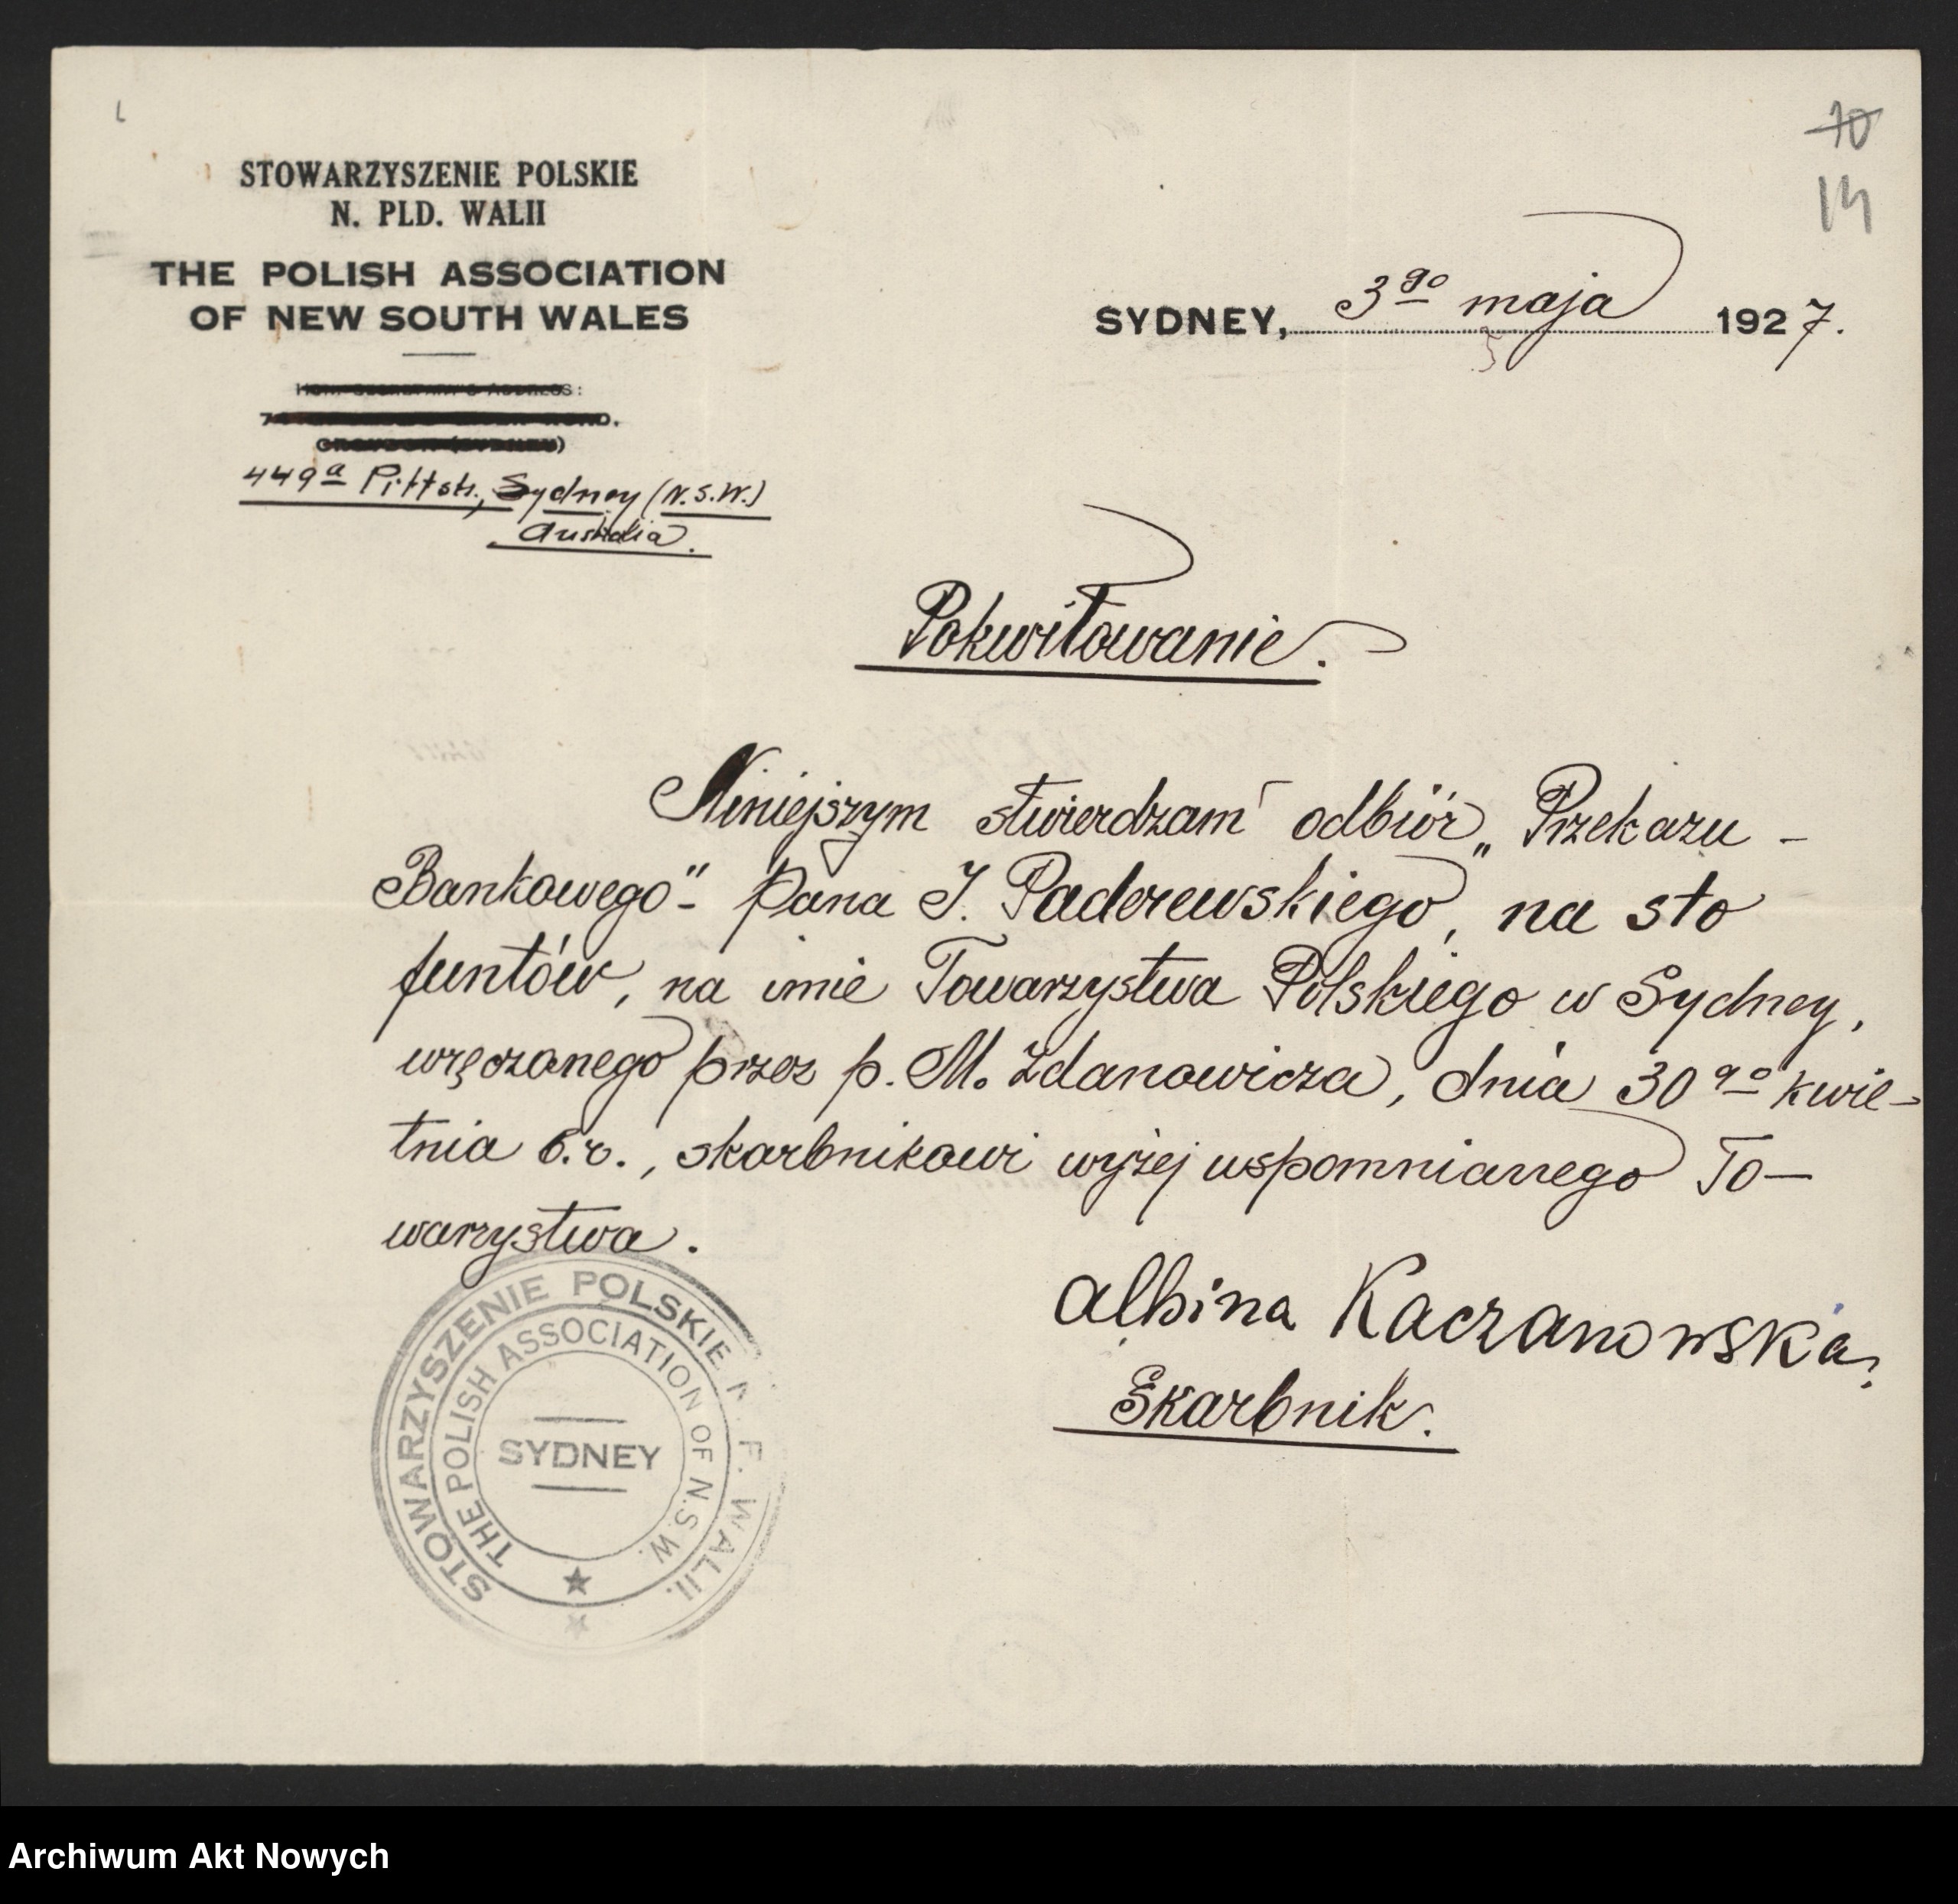 10
14
STOWARZYSZENIE POLSKIE
N. PLD. WALII
THE POLISH ASSOCIATION
OF NEW SOUTH WALES
SYDNEY, 3go maja 1927.
449a Pitt str., Sydney (N.S.W.)
Australia.
Pokwitowanie.
Niniejszym stwierdzam odbiór „Przekazu -
Bankowego"- Pana I. Paderewskiego, na sto
funtów, na imie Towarzystwa Polskiego w Sydney,
wręczanego przez p. M. Zdanowicza, dnia 30go kwie-
tnia b.r., skarbnikowi wyżej wspomnianego To-
warzystwa.
Albina Kaczanowska,
Skarbnik.
STOWARZYSZENIE POLSKIE N. P. WALII.
THE POLISH ASSOCIATION OF N.S.W.
SYDNEY
Archiwum Akt Nowych